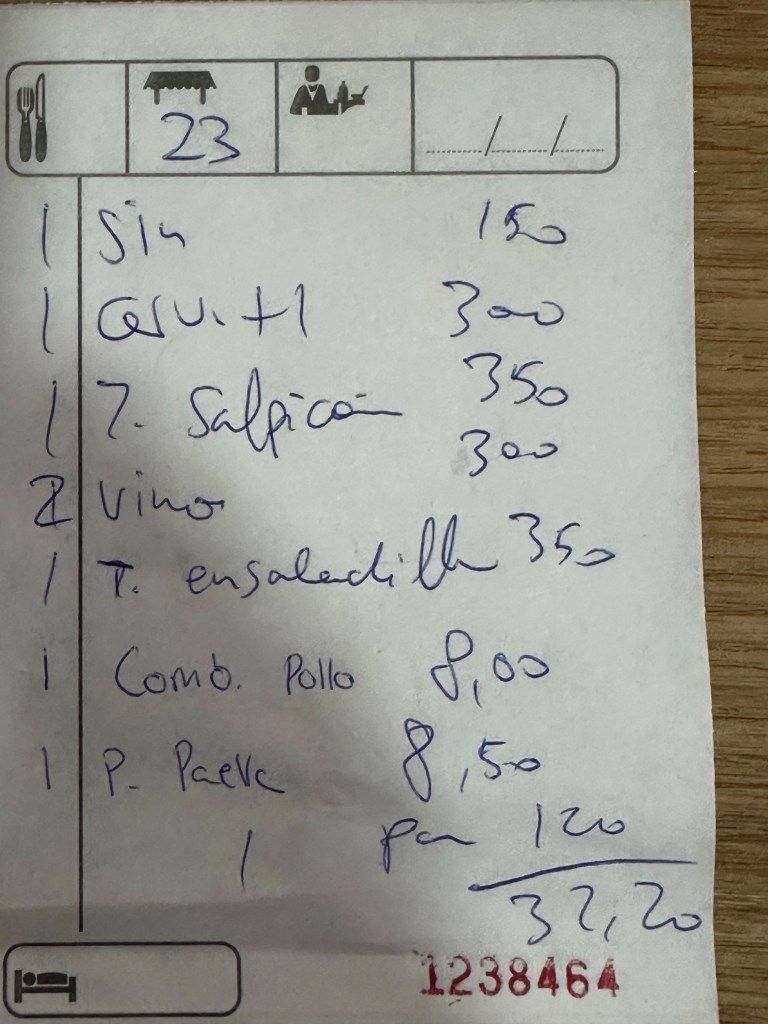 23
___/___/___
1 Sin 150
1 Cerv. +1 300
1 T. Salpicón 350
2 Vino 300
1 T. ensaladilla 350
1 Comb. Pollo 8,00
1 P. Paella 8,50
1 pan 120
32,20
1238464